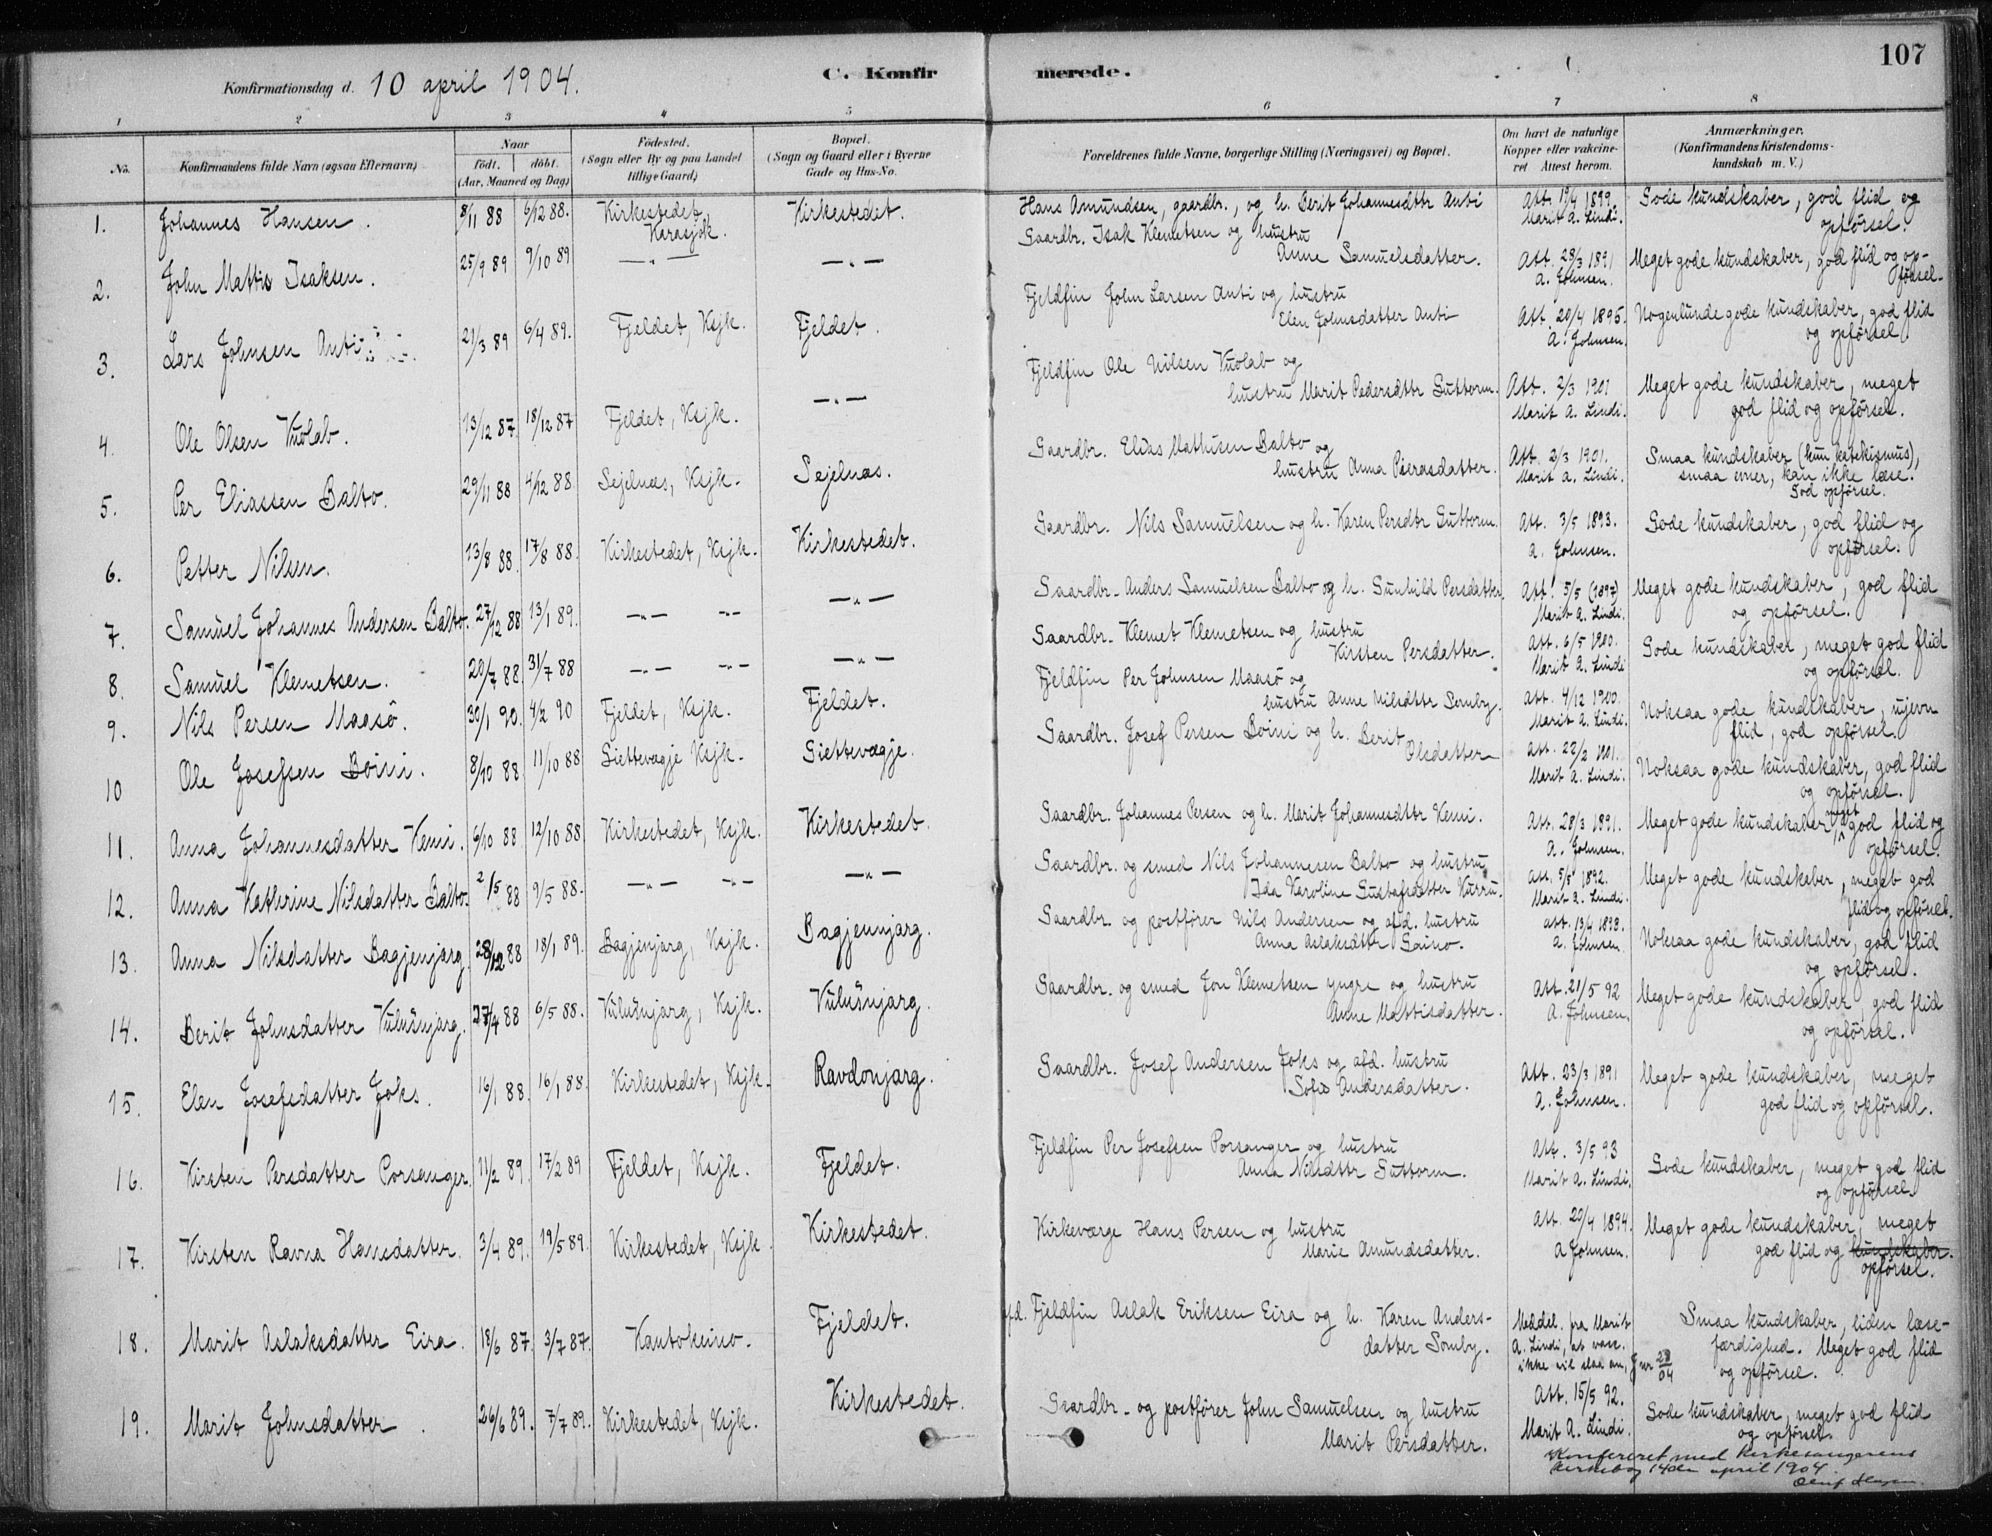 107
Konfirmationsdag d. 10 april 1904.
C. Konfirmerede.
1 2 3 4 5 6 7 8
No.
Konfirmandens fulde Navn (ogsaa Efternavn)
Naar
födt. döbt.
(Aar, Maaned og Dag)
Födested.
(Sogn eller By og paa Landet
tillige Gaard)
Bopæl.
(Sogn og Gaard eller i Byerne
Gade og Hus-No.
Forældrenes fulde Navne, borgerlige Stilling (Næringsvei) og Bopæl.
Om havt de naturlige
Kopper eller vakcine-
ret Attest herom.
Anmærkninger.
(Konfirmandens Kristendoms-
kundskab m. V.)
1. Johannes Hansen. 8/11 88 6/12 88. Kirkestedet, Karasjok. Kirkestedet.
Hans Amundsen, gaardbr., og h. Berit Johannesdttr Anti
Att. 19/4 1899. Marit A. Lindi.
Gode kundskaber, god flid og
opførsel.
2. John Mattis Isaksen. 25/9 89 9/10 89 —"— —"—
Gaardbr. Isak Klemetsen og hustru
Anne Samuelsdatter.
Att. 28/3 1891 A. Johnsen.
Meget gode kundskaber, god flid og op-
førsel.
3. Lars Johnsen Anti 21/3 89 6/4 89. Fjeldet, Ksjk. Fjeldet.
Fjeldfin John Larsen Anti og hustru
Elen Johnsdatter Anti
Att. 20/4 1895. A. Johnsen.
Nogenlunde gode kundskaber, god flid
og opførsel.
4. Ole Olsen Vuolab. 13/12 87. 18/12 87 Fjeldet, Ksjk. —"—
Fjeldfin Ole Nilsen Vuolab og
hustru Marit Pedersdttr Guttorm.
Att. 2/3 1901 Marit A. Lindi.
Meget gode kundskaber, meget
god flid og opførsel.
5. Per Eliassen Balto. 29/11 88 4/12 88 Sejelnæs, Ksjk. Sejelnæs.
Gaardbr. Elias Mathisen Balto og
hustru Anna Pierasdatter.
Att. 2/3 1901. Marit A. Lindi.
Smaa kundskaber (kun katekismus),
smaa evner, kan ikke læse.
God opførsel.
6. Petter Nilsen. 13/8 88. 17/8 88. Kirkestedet, Ksjk. Kirkestedet.
Gaardbr. Nils Samuelsen og h. Karen Persdttr Guttorm.
Att. 3/5 1893. A. Johnsen.
Gode kundskaber, god flid og
opførsel.
7. Samuel Johannes Andersen Balto. 27/12 88 13/1 89. —"— —"— —"—
Gaardbr. Anders Samuelsen Balto og h. Gunhild Persdatter.
Att. 3/5 (1897) Marit A. Lindi.
Meget gode kundskaber, god flid
og opførsel.
8. Samuel Klemetsen. 20/7 88. 31/7 88 —"— —"— —"—
Gaardbr. Klemet Klemetsen og hustru
Kirsten Persdatter.
Att. 6/5 1900. Marit A. Lindi
Gode kundskaber, meget god flid
og opførsel.
9. Nils Persen Maasö. 30/1 90. 4/2 90 Fjeldet, Ksjk. Fjeldet.
Fjeldfin Per Johnsen Maasö og
hustru Anne Nilsdttr Somby.
Att. 4/12 1900. Marit A. Lindi.
Noksaa gode kundskaber, ujevn
flid, god opførsel.
10 Ole Josefsen Boini. 8/10 88 11/10 88 Giettevægje Ksjk. Giettevægje.
Gaardbr. Josef Persen Boini og h. Berit
Olsdatter
Att. 22/2 1901. Marit A. Lindi.
Noksaa gode kundskaber, god flid
og opførsel.
11. Anna Johannesdatter Kemi. 6/10 88 12/10 88. Kirkestedet, Ksjk. Kirkestedet.
Gaardbr. Johannes Persen og h. Marit Johannesdttr Kemi.
Att. 28/3 1891. A. Johnsen.
Meget gode kundskaber, meget god flid og
opførsel.
12. Anna Kathrine Nilsdatter Balto. 2/5 88 9/5 88. —"— —"— —"—
Gaardbr. og smed Nils Johannesen Balto og hustru
Ida Karoline Gustafsdatter Kurru.
Att. 5/5 1892. Marit A. Lindi.
Meget gode kundskaber, meget god
flid og opførsel.
13. Anna Nilsdatter Bagjenjarg. 28/12 88 18/1 89. Bagjenjarg, Ksjk. Bagjennjarg.
Gaardbr. og postfører Nils Andersen og afd. hustru
Anna Aslaksdttr Gaino.
Att. 13/4 1893. A. Johnsen.
Noksaa gode kundskaber, god flid
og opførsel.
14. Berit Johnsdatter Vulušnjarg. 27/4 88 6/5 88. Vulušnjarg, Ksjk. Vulušnjarg.
Gaardbr. og smed Jon Klemetsen yngre og hustru
Anne Mattisdatter.
Att. 21/5 92 A. Johnsen.
Meget gode kundskaber, god flid
og opførsel.
15. Elen Josefsdatter Joks. 16/1 88 16/1 88. Kirkestedet, Ksjk. Ravdonjarg.
Gaardbr. Josef Andersen Joks og afd. hustru
Sofie Andersdatter.
Att. 23/3 1891 A. Johnsen.
Meget gode kundskaber, meget
god flid og opførsel.
16. Kirsten Persdatter Porsanger. 11/2 89. 17/2 89 Fjeldet, Ksjk. Fjeldet.
Fjeldfin Per Josefsen Porsanger og hustru
Anna Nilsdttr Guttorm.
Att. 3/5 93 Marit A. Lindi.
Gode kundskaber, meget god flid
og opførsel.
17. Kirsten Ravna Hansdatter. 3/4 89. 19/5 89. Kirkestedet, Ksjk. Kirkestedet.
Kirkeværge Hans Persen og hustru
Marie Amundsdatter.
Att. 20/4 1894. A Johnsen.
Meget gode kundskaber, meget
god flid og kundskaber.
opførsel.
18. Marit Aslaksdatter Eira. 18/6 87. 3/7 87. Kautokeino. Fjeldet.
afd. Fjeldfin Aslak Eriksen Eira og h. Karen Anders-
datter Somby.
Meddel. fra Marit
A. Lindi, at vacc.
ikke vil slaa an, J nr 28/04
Smaa kundskaber, liden læse-
færdighed. Meget god flid
og opførsel.
19. Marit Johnsdatter. 26/6 89. 7/7 89. Kirkestedet, Ksjk. Kirkestedet.
Gaardbr. og postfører John Samuelsen og hustru
Marit Persdatter.
Att. 15/5 92. Marit A. Lindi.
Gode kundskaber, meget god flid
og opførsel.
Konfereret med Kirkesangerens
Kirkebog 14de april 1904.